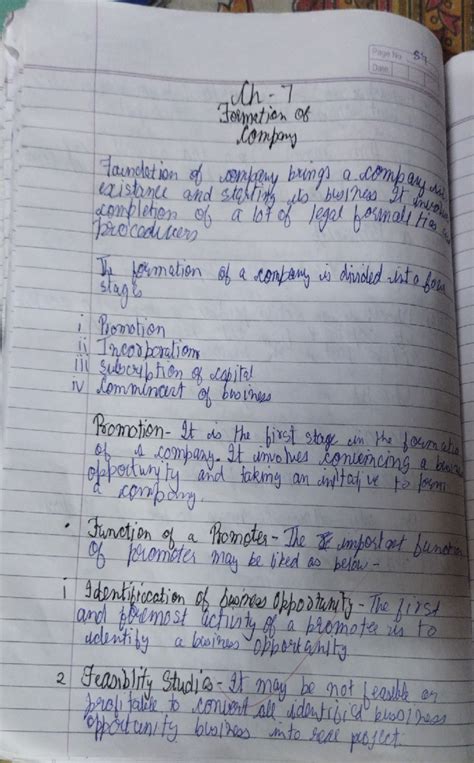 Page No. 84
Date
Ch - 7
Formation of
Company
Foundation of company brings a company
existance and starting its business It
completion of a lot of legal formalities
proceducers
The formation of a company is divided into a four
stages
i Promotion
ii Incorporation
iii subscription of capital
iv Commincert of business
Promotion - It is the first stage in the formatio
of a company. It involves convincing a
opportunity and taking an initative to form
a company.
• Function of a Promoter - The important function
of promoter may be liked as below -
i Identification of business Opportunity - The first
and foremost activity of a promoter is to
identify a business opportunity
2 Feasiblity Studies - It may be not feasible or
profitable to convert all identified business
opportunity business into real project.